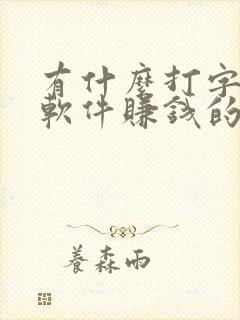 有什麼打字
軟件賺錢的
養森雨